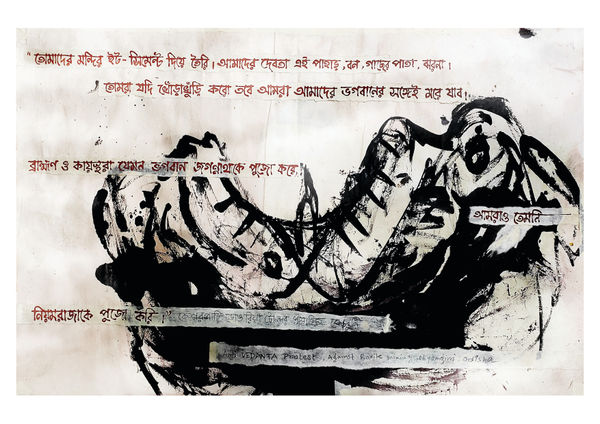 "তোমাদের মন্দির ইট-সিমেন্ট দিয়ে তৈরি। আমাদের দেবতা এই পাহাড়, বন, গাছের পাতা, ঝরনা।
তোমরা যদি খোঁড়াখুঁড়ি করো তবে আমরা আমাদের ভগবানের সঙ্গেই মরে যাব।
ব্রাহ্মণ ও কায়স্থরা যেমন ভগবান জগন্নাথকে পুজো করে,
আমরাও তেমনি
নিয়মরাজাকে পুজো করি।"
VEDANTA Protest, Against Boxite mining Odisha